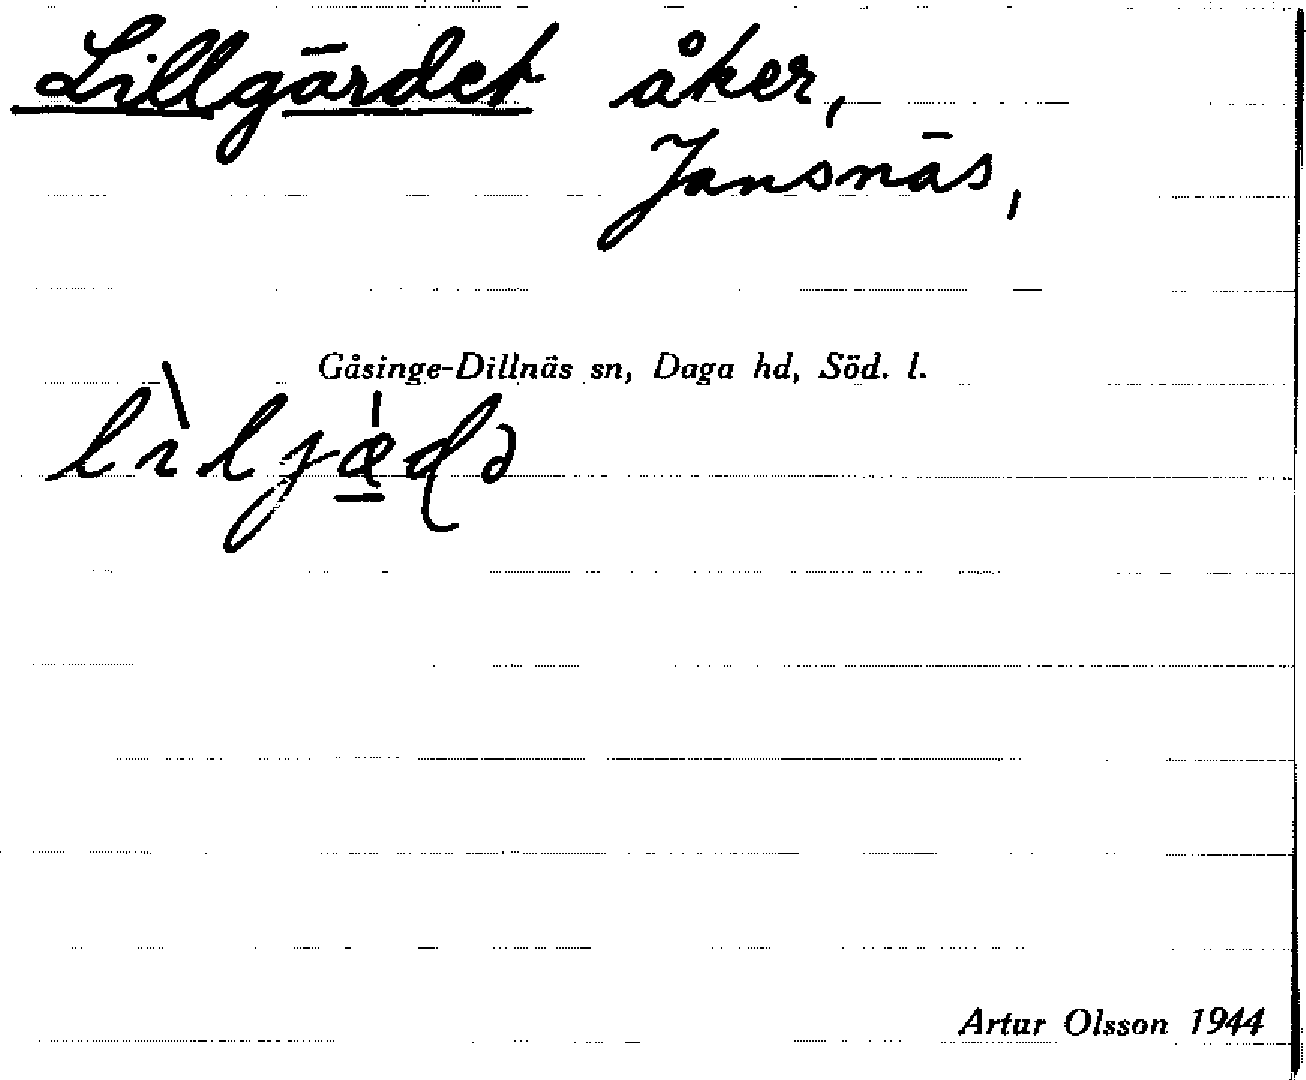 Lillgärdet åker,
Jansnäs,
Gåsinge-Dillnäs sn, Daga hd, Söd. l.
Artur Olsson 1944